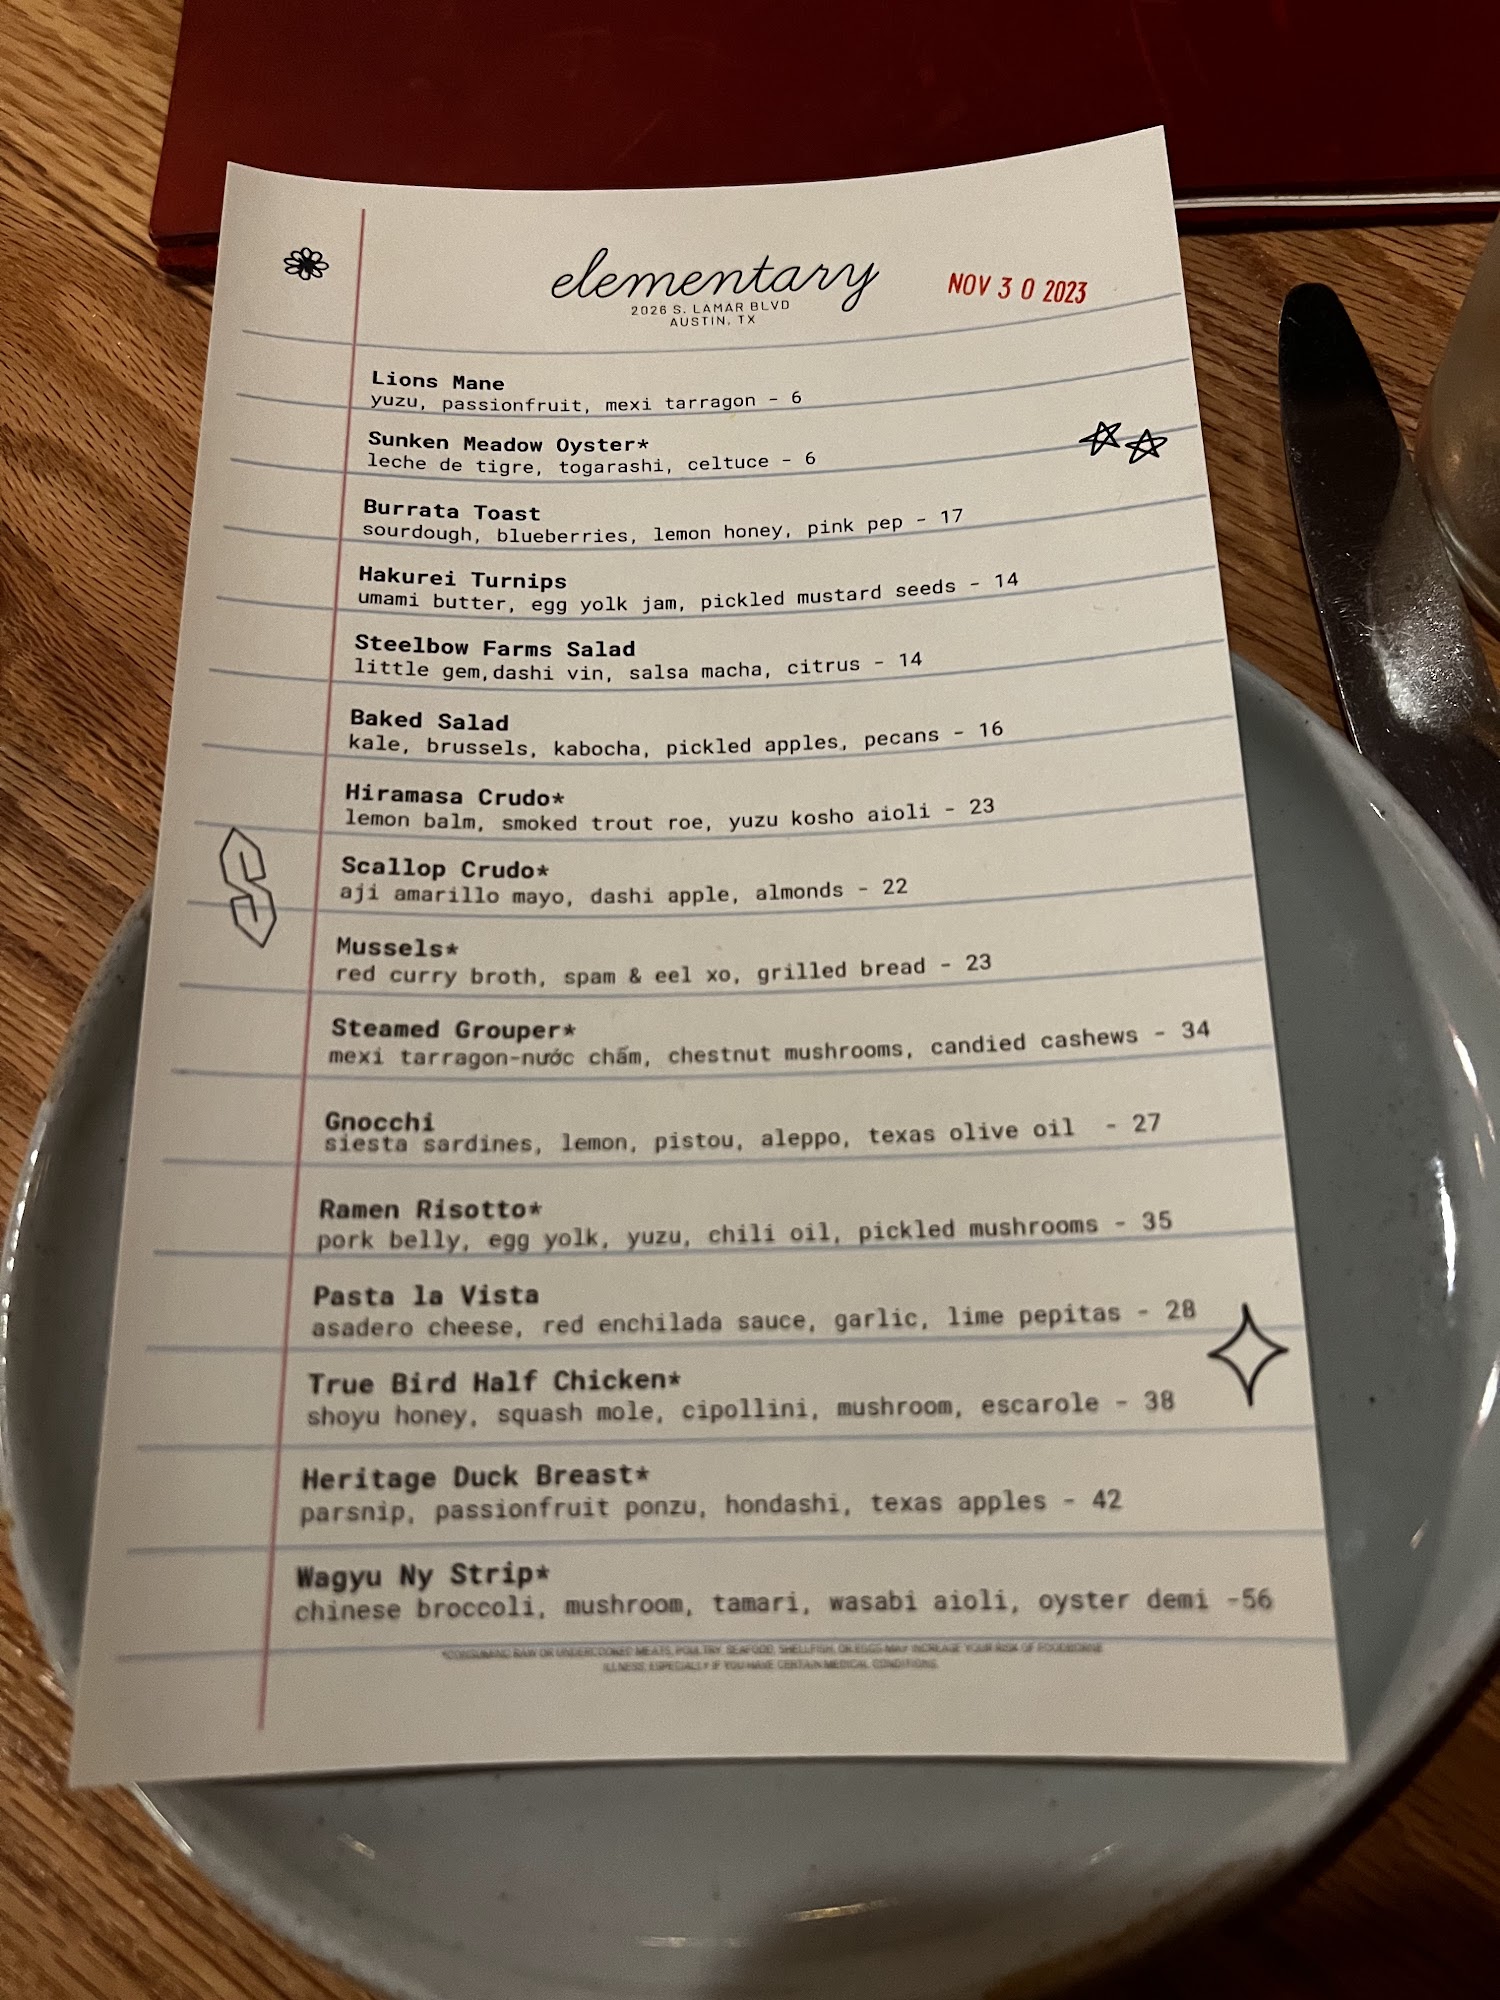 elementary
2026 S. LAMAR BLVD
AUSTIN, TX
NOV 3 0 2023
Lions Mane
yuzu, passionfruit, mexi tarragon - 6
Sunken Meadow Oyster*
leche de tigre, togarashi, celtuce - 6
Burrata Toast
sourdough, blueberries, lemon honey, pink pep - 17
Hakurei Turnips
umami butter, egg yolk jam, pickled mustard seeds - 14
Steelbow Farms Salad
little gem,dashi vin, salsa macha, citrus - 14
Baked Salad
kale, brussels, kabocha, pickled apples, pecans - 16
Hiramasa Crudo*
lemon balm, smoked trout roe, yuzu kosho aioli - 23
Scallop Crudo*
aji amarillo mayo, dashi apple, almonds - 22
Mussels*
red curry broth, spam & eel xo, grilled bread - 23
Steamed Grouper*
mexi tarragon-nước chấm, chestnut mushrooms, candied cashews - 34
Gnocchi
siesta sardines, lemon, pistou, aleppo, texas olive oil - 27
Ramen Risotto*
pork belly, egg yolk, yuzu, chili oil, pickled mushrooms - 35
Pasta la Vista
asadero cheese, red enchilada sauce, garlic, lime pepitas - 28
True Bird Half Chicken*
shoyu honey, squash mole, cipollini, mushroom, escarole - 38
Heritage Duck Breast*
parsnip, passionfruit ponzu, hondashi, texas apples - 42
Wagyu Ny Strip*
chinese broccoli, mushroom, tamari, wasabi aioli, oyster demi -56
*CONSUMING RAW OR UNDERCOOKED MEATS, POULTRY, SEAFOOD, SHELLFISH, OR EGGS MAY INCREASE YOUR RISK OF FOODBORNE
ILLNESS, ESPECIALLY IF YOU HAVE CERTAIN MEDICAL CONDITIONS.